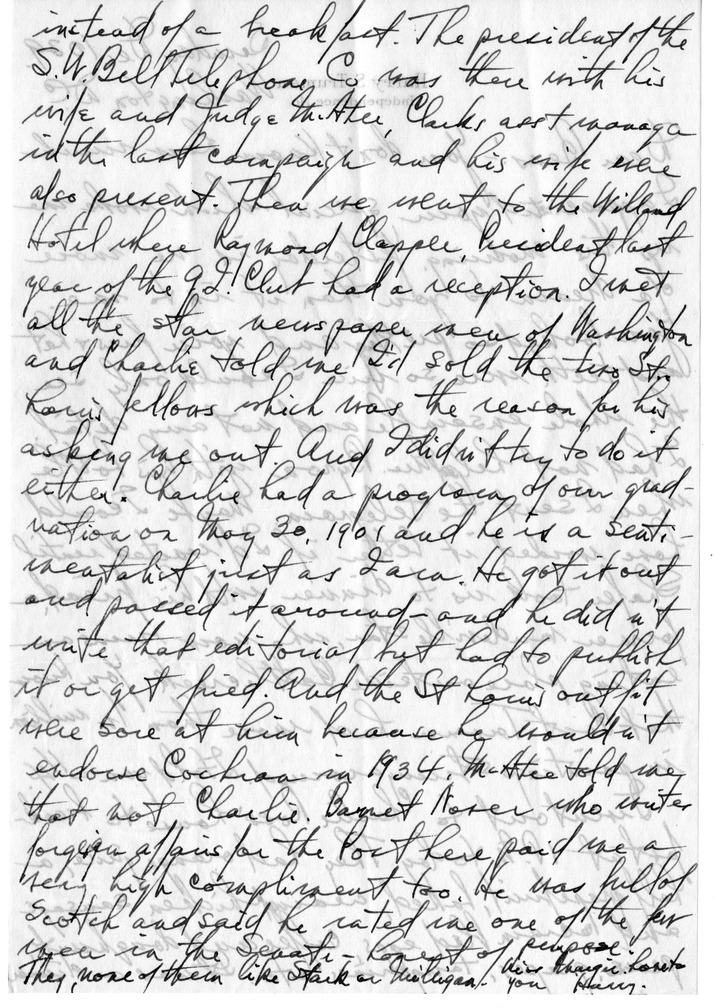 instead of a breakfast. The president of the
S.W. Bell Telephone Co was there with his
wife and Judge McAtee, Clarks asst manager
in the last campaign and his wife were
also present. Then we went to the Willard
Hotel where Raymond Clapper, President last
year of the G.I. Club had a reception. I met
all the star newspaper men of Washington
and Charlie told me I'd sold the two St.
Louis fellows which was the reason for his
asking me out. And I didn't try to do it
either. Charlie had a program of our grad-
uation on May 30, 1901 and he is a senti-
mentalist just as I am. He got it out
and passed it around - and he didn't
write that editorial but had to publish
it or get fired. And the St Louis outfit
were sore at him because he wouldn't
endorse Cochran in 1934. McAtee told me
that not Charlie. Barnet Nover who writes
foreign affairs for the Post here paid me a
very high compliment too. He was full of
Scotch and said he rated me one of the few
men in the Senate - honest of purpose.
They, none of them like Stark or Milligan. Kiss Margie. Love to
you Harry.